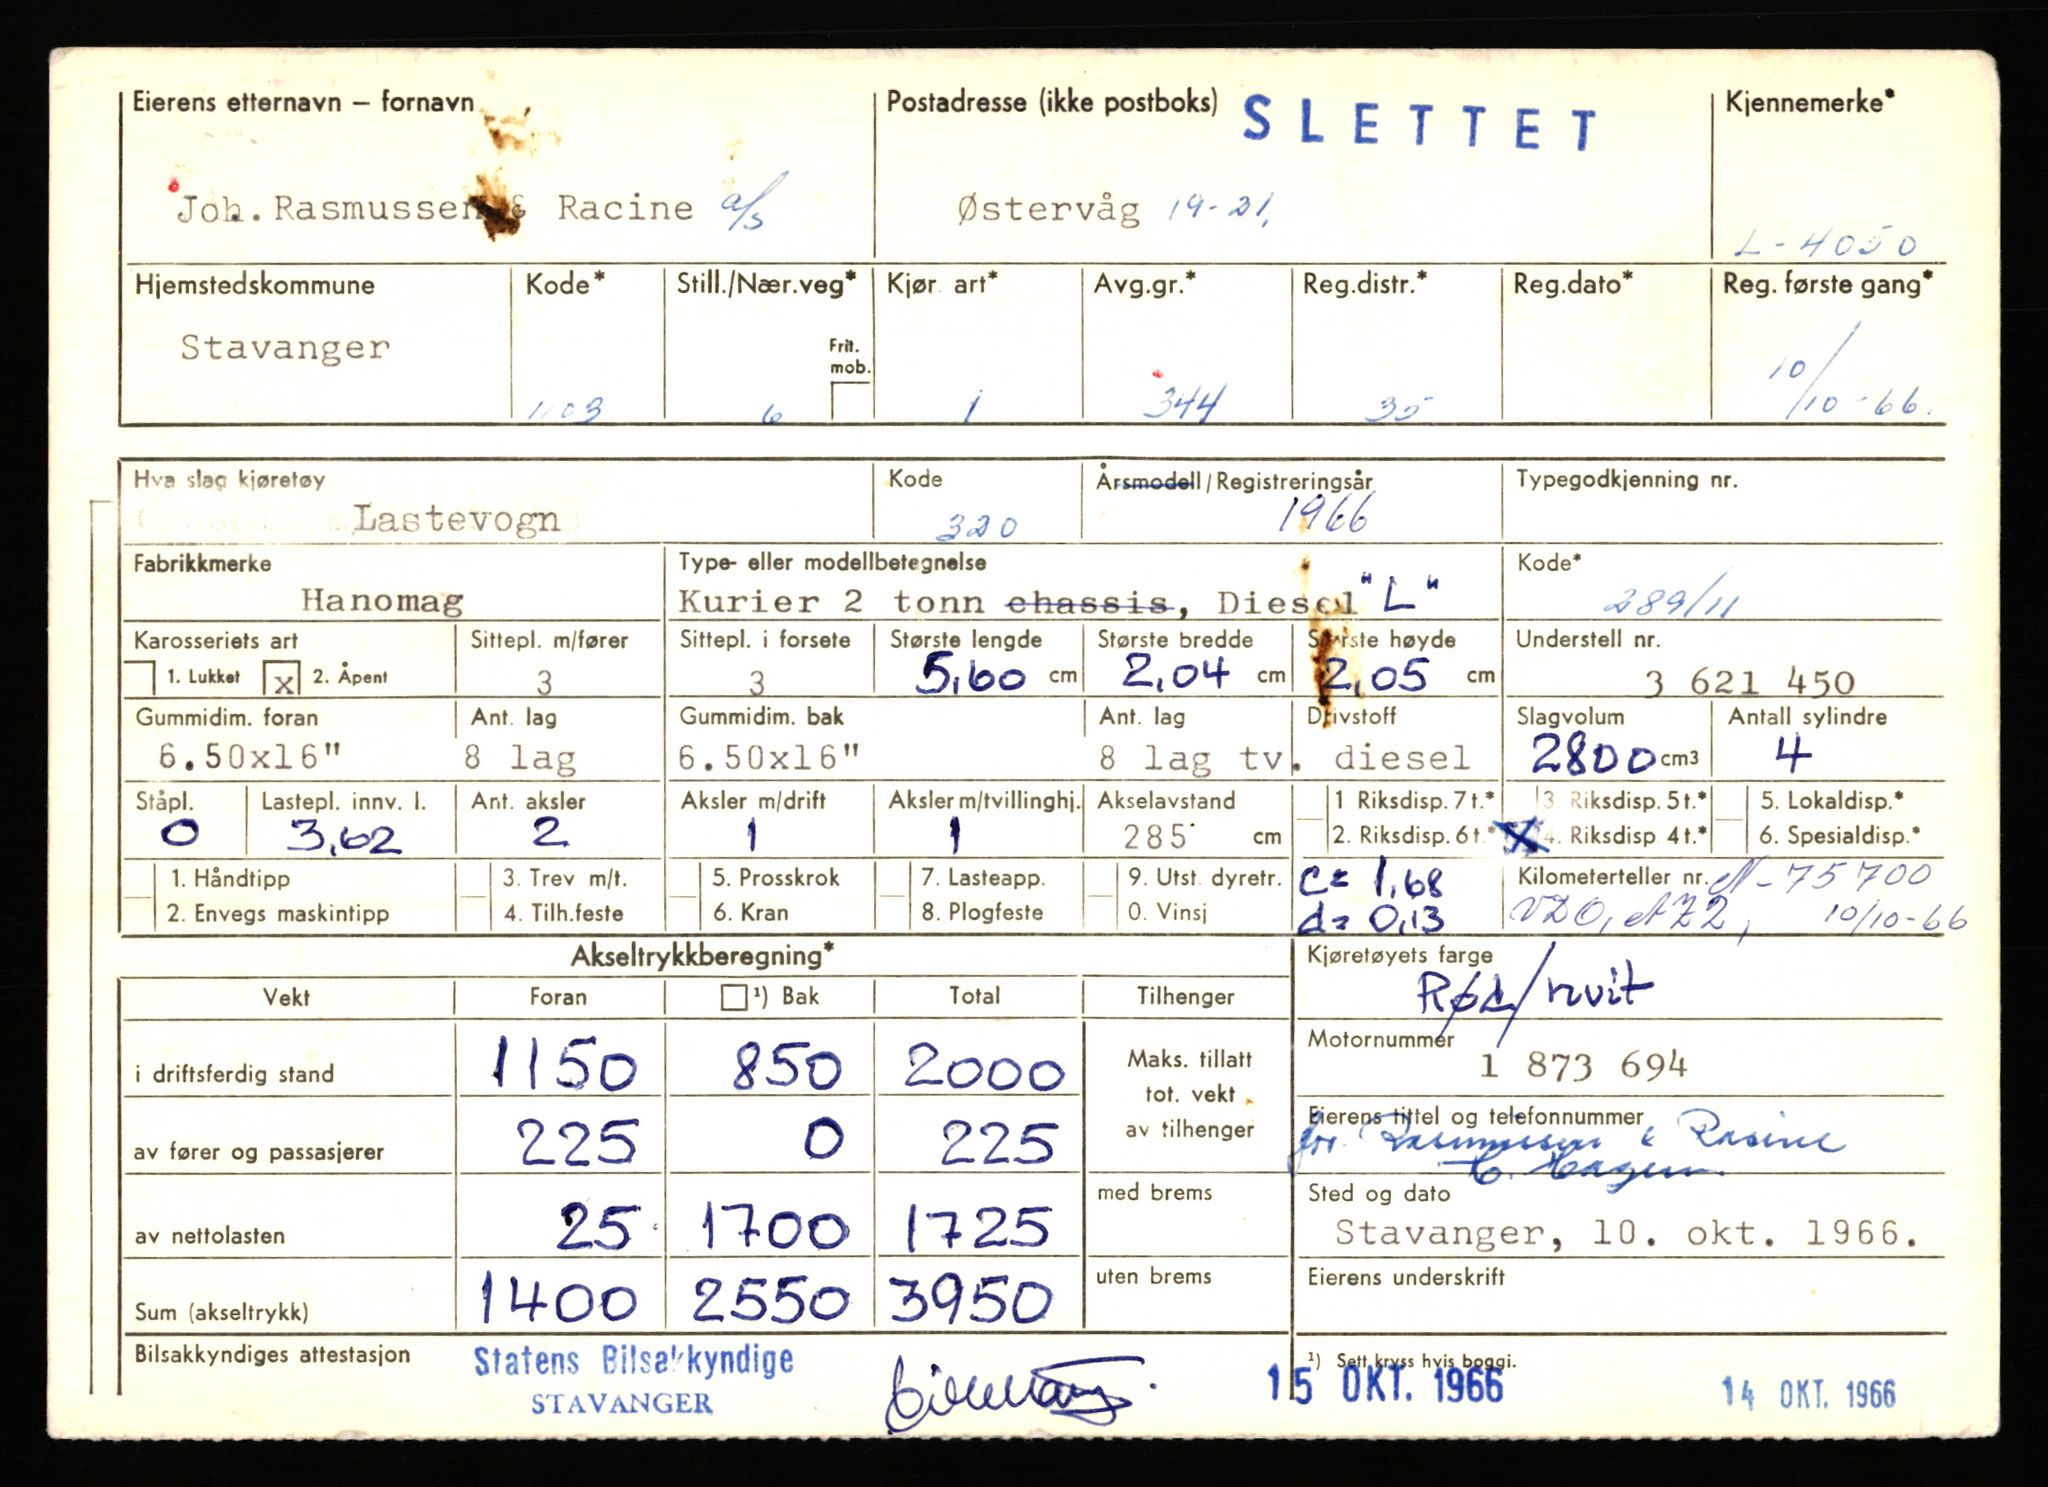 Eierens etternavn – fornavn
Joh. Rasmussen & Racine a/s
Postadresse (ikke postboks)
SLETTET
Østervåg 19-21.
Kjennemerke*
L-4050
Hjemstedskommune
Stavanger
Kode*
1103
Still./Nær.veg*
Frit. mob.
6
Kjør. art*
1
Avg.gr.*
344
Reg.distr.*
35
Reg.dato*
Reg. første gang*
10/10-66.
Hva slag kjøretøy
Lastevogn
Kode
320
Årsmodell/Registreringsår
1966
Typegodkjenning nr.
Fabrikkmerke
Hanomag
Type- eller modellbetegnelse
Kurier 2 tonn chassis, Diesel "L"
Kode*
289/11
Karosseriets art
1. Lukket x 2. Åpent
Sittepl. m/fører
3
Sittepl. i forsete
3
Største lengde
5,60 cm
Største bredde
2,04 cm
Største høyde
2,05 cm
Understell nr.
3 621 450
Gummidim. foran
6.50x16"
Ant. lag
8 lag
Gummidim. bak
6.50x16"
Ant. lag
8 lag tv.
Drivstoff
diesel
Slagvolum
2800 cm3
Antall sylindre
4
Ståpl.
0
Lastepl. innv. l.
3,62
Ant. aksler
2
Aksler m/drift
1
Aksler m/tvillinghj.
1
Akselavstand
285 cm
1 Riksdisp. 7 t.*
2. Riksdisp. 6 t.*
3. Riksdisp. 5 t.*
X 4. Riksdisp 4 t.*
5. Lokaldisp.*
6. Spesialdisp.*
1. Håndtipp
2. Envegs maskintipp
3. Trev m/t.
4. Tilh.feste
5. Prosskrok
6. Kran
7. Lasteapp.
8. Plogfeste
9. Utst. dyretr.
0. Vinsj
c = 1,68
d = 0,13
Kilometerteller nr. N-75700
VDO, 10/10-66
Akseltrykkberegning*
Vekt Foran ¹) Bak Total Tilhenger
i driftsferdig stand 1150 850 2000
av fører og passasjerer 225 0 225
av nettolasten 25 1700 1725
Sum (akseltrykk) 1400 2550 3950
Maks. tillatt
tot. vekt
av tilhenger
med brems
uten brems
Kjøretøyets farge
Rød/hvit
Motornummer
1 873 694
Eierens tittel og telefonnummer
for Rasmussen & Racine
Sted og dato
Stavanger, 10. okt. 1966.
Eierens underskrift
Bilsakkyndiges attestasjon
Statens Bilsakkyndige
STAVANGER
¹) Sett kryss hvis boggi.
15 OKT. 1966
14 OKT. 1966